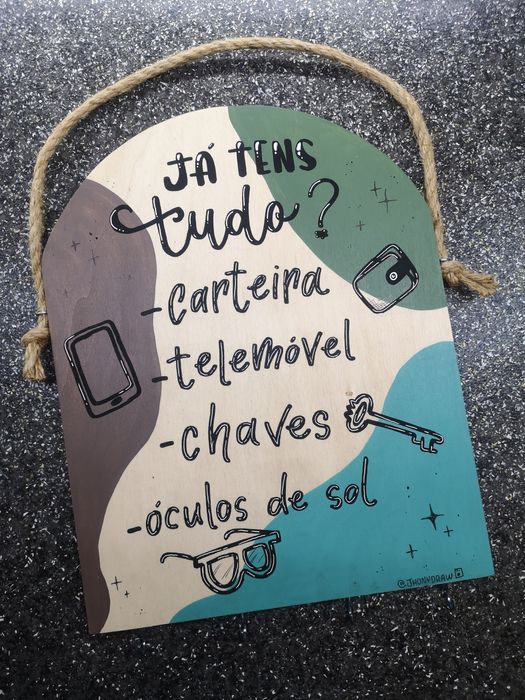 JÁ TENS
tudo?
-carteira
-telemóvel
-chaves
-óculos de sol
@JHONYDRAW